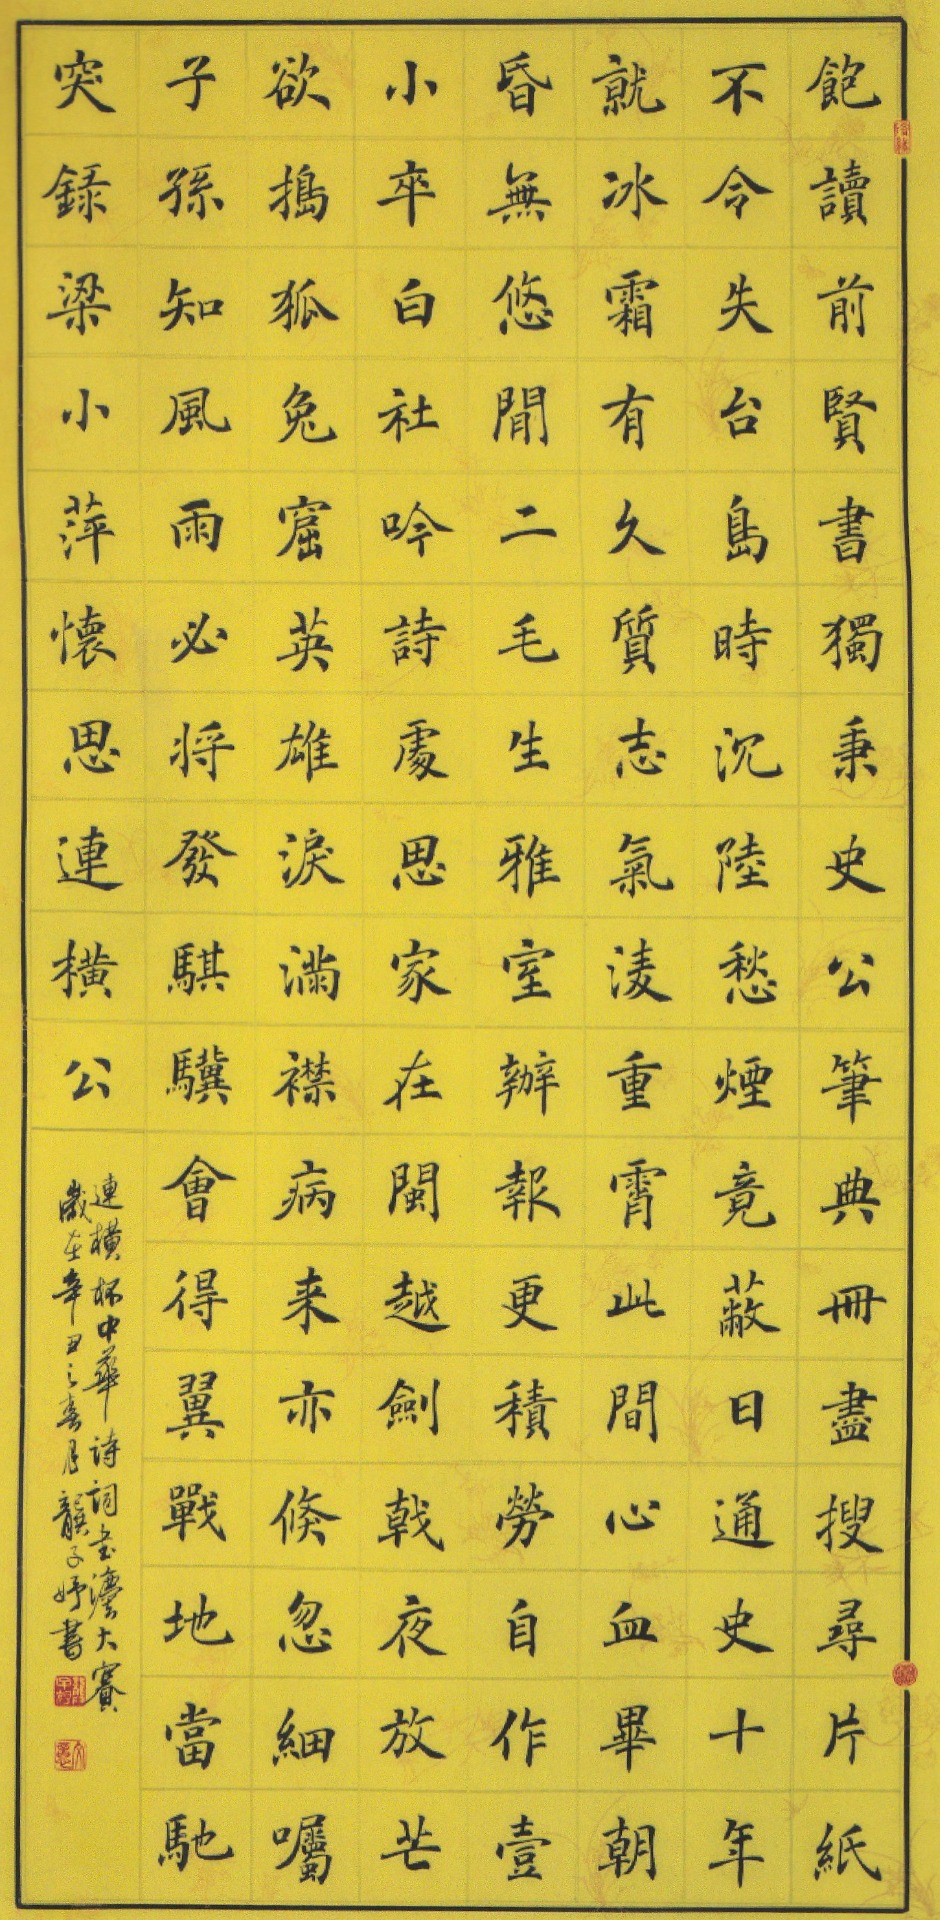 飽讀前賢書獨秉史公筆典冊盡搜尋片紙
不令失台島時沉陸愁煙竟蔽日通史十年
就冰霜有久質志氣淩重霄此間心血畢朝
昏無悠閒二毛生雅室辦報更積勞自作壹
小卒白社吟詩處思家在閩越劍戟夜放芒
欲搗狐兔窟英雄淚滿襟病来亦倏忽細囑
子孫知風雨必将發騏驥會得翼戰地當馳
突錄梁小萍懷思連橫公
連橫杯中華诗词书濤大賽
歲在辛丑之春月龔子妤書